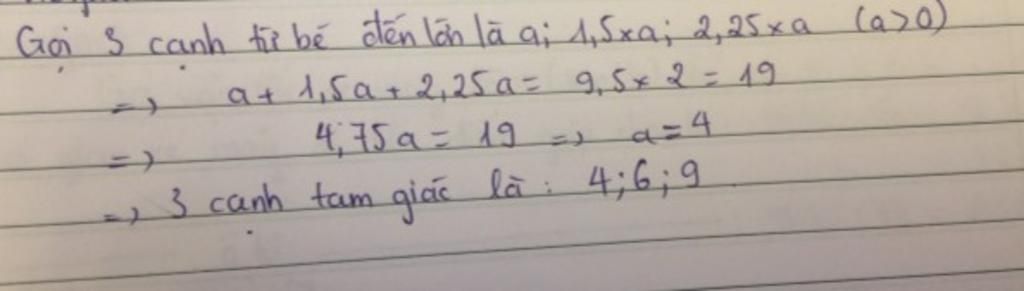 Gọi 3 cạnh từ bé đến lớn là a; 1,5×a; 2,25×a (a>0)
=> a + 1,5a + 2,25a = 9,5 × 2 = 19
=> 4,75a = 19 => a = 4
=> 3 cạnh tam giác là: 4; 6; 9